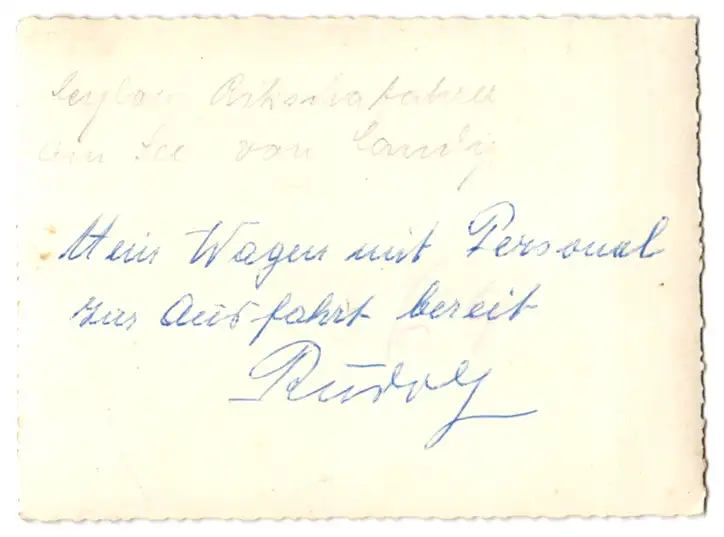 Ceylon Rikschafahrer
am See von Candy
Mein Wagen mit Personal
zur Ausfahrt bereit
Rudolf